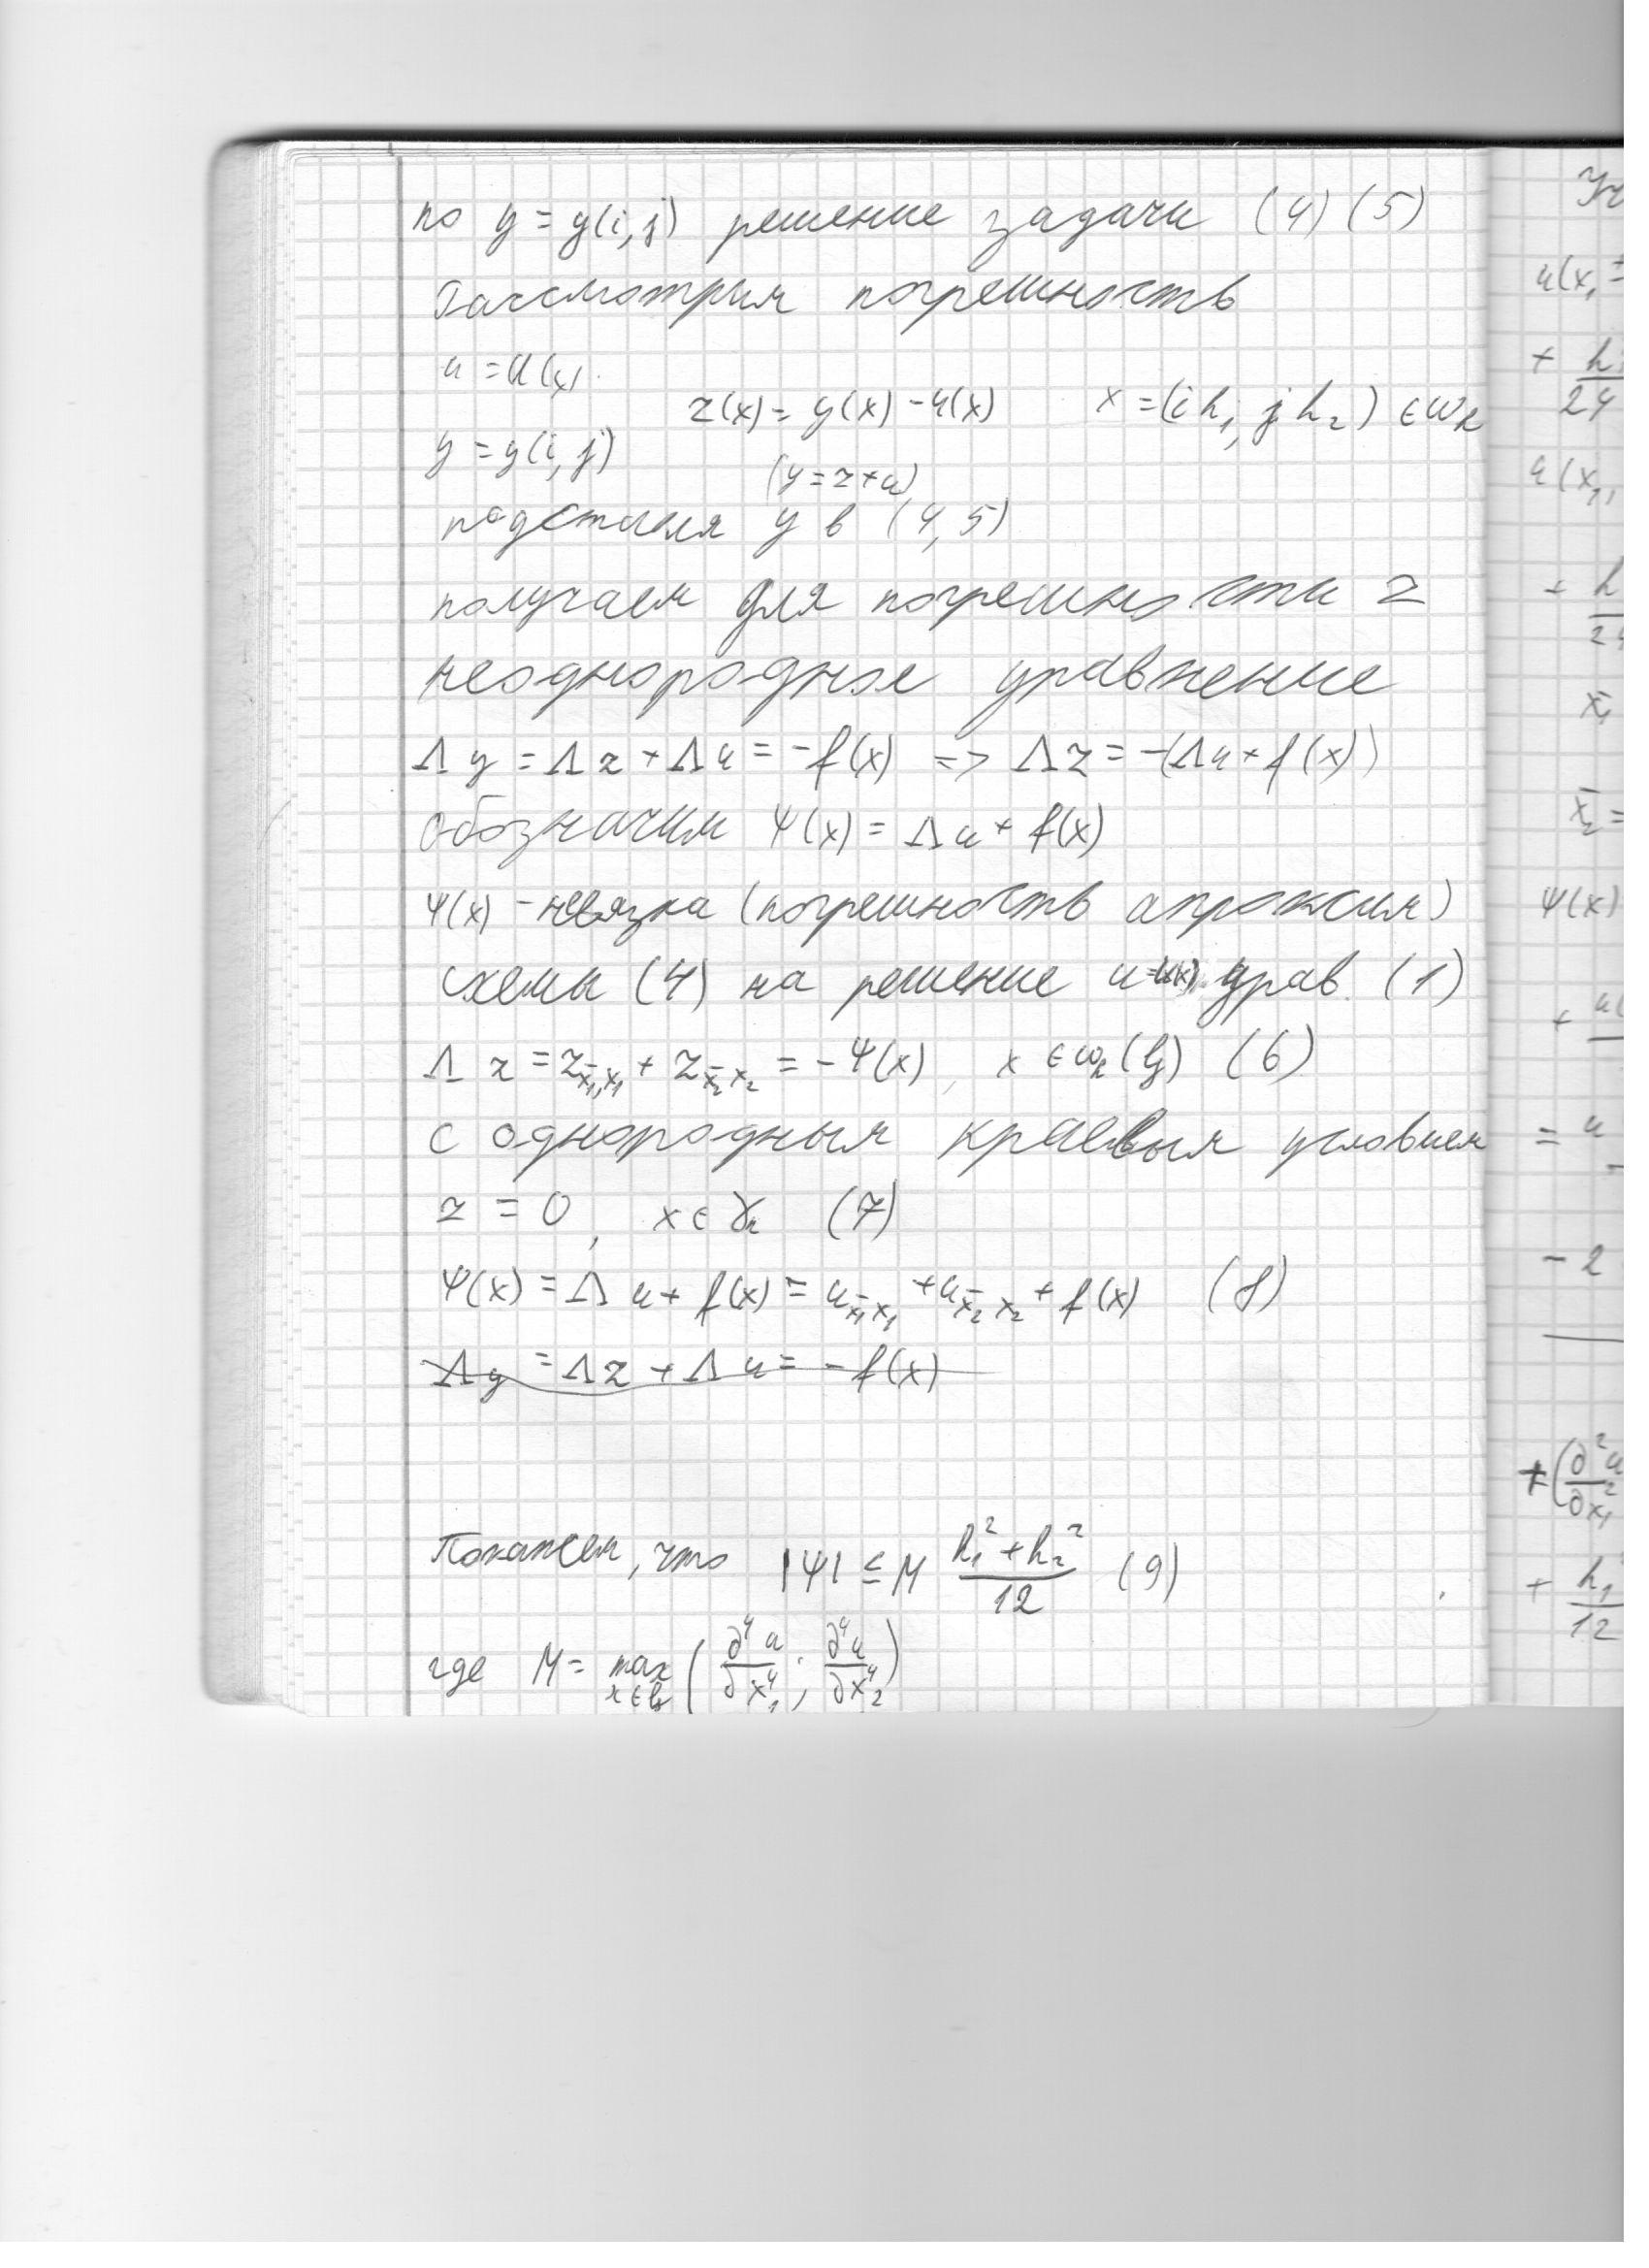 по y = y(i,j) решение задачи (4) (5)
Рассмотрим погрешность
u = u(x)
z(x) = y(x) - u(x)   x = (i h₁, j h₂) ∈ ω_h
y = y(i,j)
(y = z + u)
подставляя y в (4,5)
получаем для погрешности z
неоднородное уравнение
Λ y = Λ z + Λ u = -f(x) => Λ z = -(Λ u + f(x))
обозначим Ψ(x) = Λ u + f(x)
Ψ(x) - невязка (погрешность апроксим)
схемы (4) на решение u=u(x) урав. (1)
Λ z = z_x̄₁x₁ + z_x̄₂x₂ = -Ψ(x), x ∈ ω_h (6)
с однородным краевым условием
z = 0, x ∈ γ_h (7)
Ψ(x) = Λ u + f(x) = u_x̄₁x₁ + u_x̄₂x₂ + f(x) (8)
Λ y = Λ z + Λ u = - f(x)
Покажем, что |Ψ| ≤ M (h₁² + h₂²)/12 (9)
где M = max (∂⁴u/∂x₁⁴ ; ∂⁴u/∂x₂⁴)
u(x₁
+ h
24
u(x₁,
+ h
x̄₁
x̄₂ =
Ψ(x)
+ u(
= u
- 2
+ (∂²u/∂x₁²
+ h₁/12